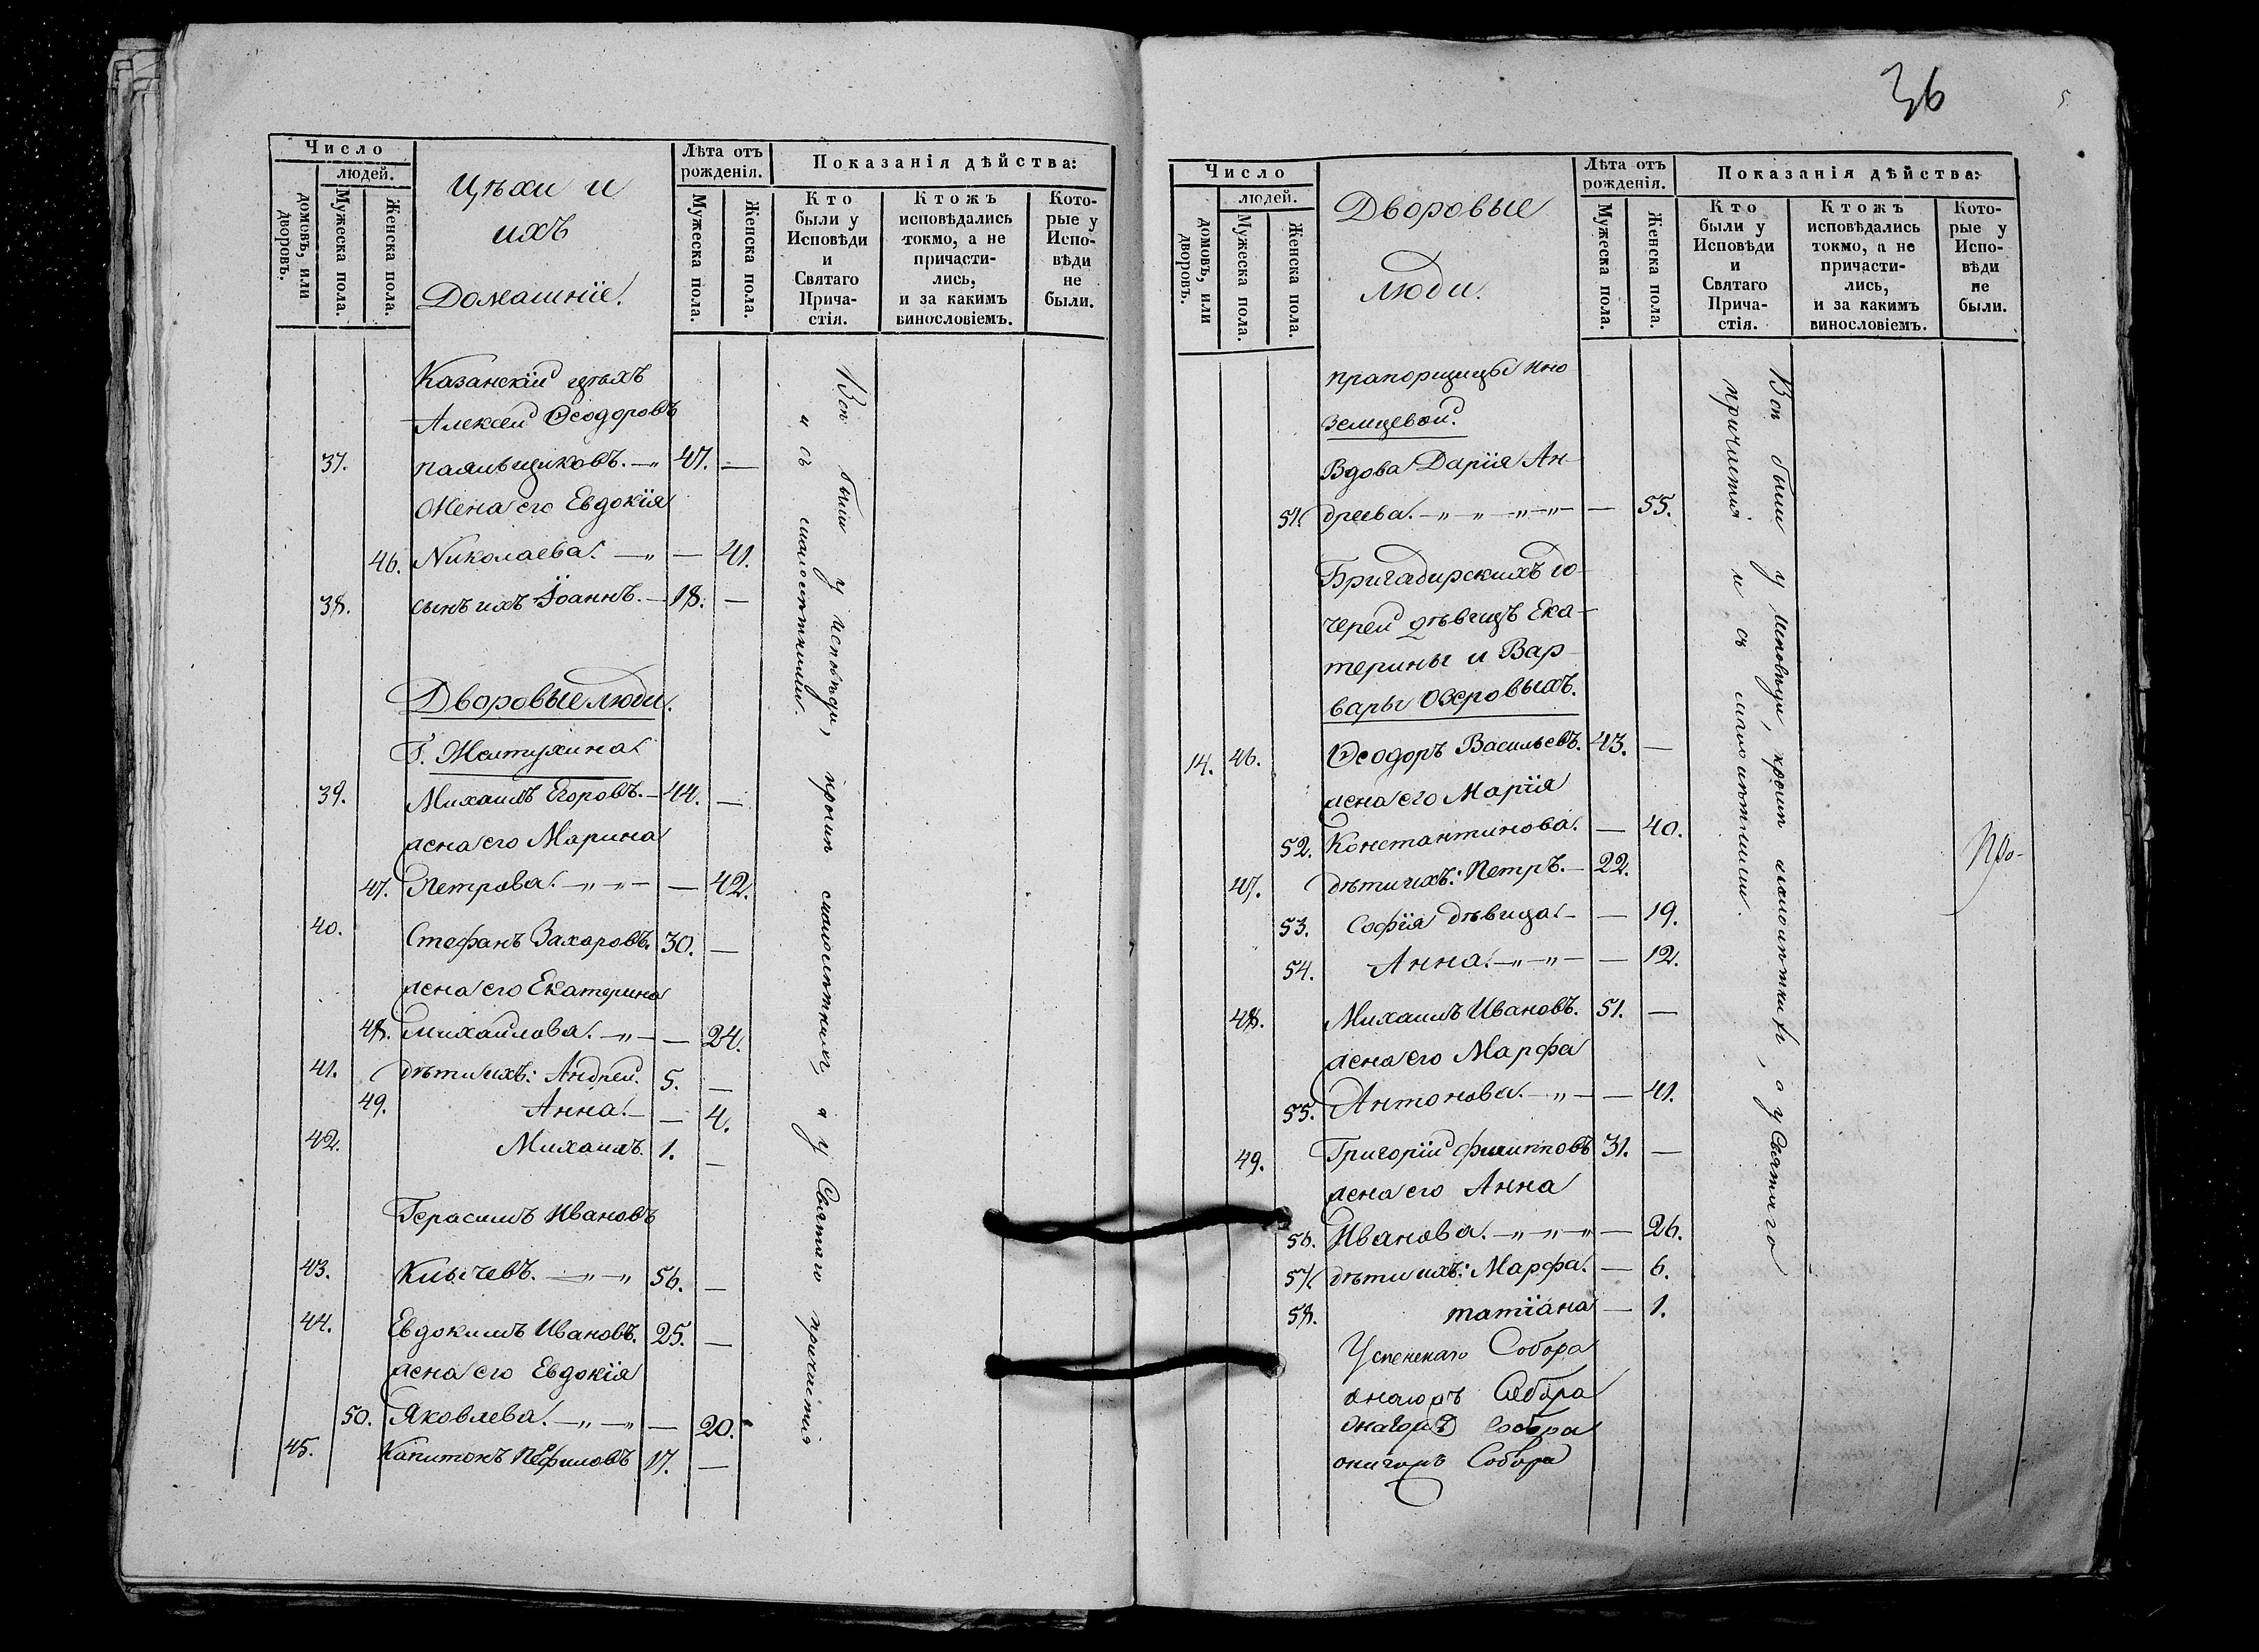 Число
людей.
домовъ, или дворовъ.
Мужеска пола.
Женска пола.
Цѣхи и
ихъ
Домашніе.
Лѣта отъ рожденія.
Мужеска пола.
Женска пола.
Показанія дѣйства:
Кто были у Исповѣди и Святаго Прича- стія.
Ктожъ исповѣдались токмо, а не причасти- лись, и за какимъ винословіемъ.
Кото- рые у Испо- вѣди не были.
Казанскій цѣхъ
Алексѣй Ѳеодоровъ
37. паяльщиковъ. — 47. —
Жена его Евдокія
46. Николаева. — — 41.
38. сынъ ихъ Іоаннъ. — 18. —
Дворовые люди.
Г. Желтухина.
39. Михаилъ Егоровъ. — 44. —
жена его Марина
47. Петрова. — — 42.
40. Стефанъ Захаровъ. 30. —
жена его Екатерина
48. Михайлова. — — 24.
41. дѣти ихъ: Андрей. 5. —
49. Анна. — — 4.
42. Михаилъ. 1. —
Герасимъ Ивановъ
43. Клычевъ. — 56. —
44. Евдокимъ Ивановъ. 25. —
жена его Евдокія
50. Яковлева. — — 20.
45. Капитонъ 17. —
Всѣ были у исповѣди, кромѣ малолѣтнихъ, а у Святаго причастія
и съ малолѣтними.
36
5
Число
людей.
домовъ, или дворовъ.
Мужеска пола.
Женска пола.
Дворовые
люди.
Лѣта отъ рожденія.
Мужеска пола.
Женска пола.
Показанія дѣйства:
Кто были у Исповѣди и Святаго Прича- стія.
Ктожъ исповѣдались токмо, а не причасти- лись, и за какимъ винословіемъ.
Кото- рые у Испо- вѣди не были.
прапорщицы Ино
земцевой.
Вдова Дарія Ан-
51. дреева. — — 55.
Бригадирскихъ до-
черей дѣвицъ Ека-
терины и Вар-
вары Озеровыхъ.
14. 46. Ѳеодоръ Васильевъ. 43. —
жена его Марія
52. Константинова. — 40.
47. дѣти ихъ: Петръ. — 22.
53. Софія дѣвица. — — 19.
54. Анна. — — 12.
48. Михаилъ Ивановъ. 51. —
жена его Марфа
55. Антонова. — — 41.
49. Григорій Филиповъ 31. —
жена его Анна
56. Иванова. — — 26.
57. дѣти ихъ: Марфа. — 6.
58. татіана — 1.
Успенскаго Собора
Собора
Собора
Собора
Всѣ были у исповѣди, кромѣ малолѣтнихъ, а у Святаго
причастія и съ малолѣтними.
Про-